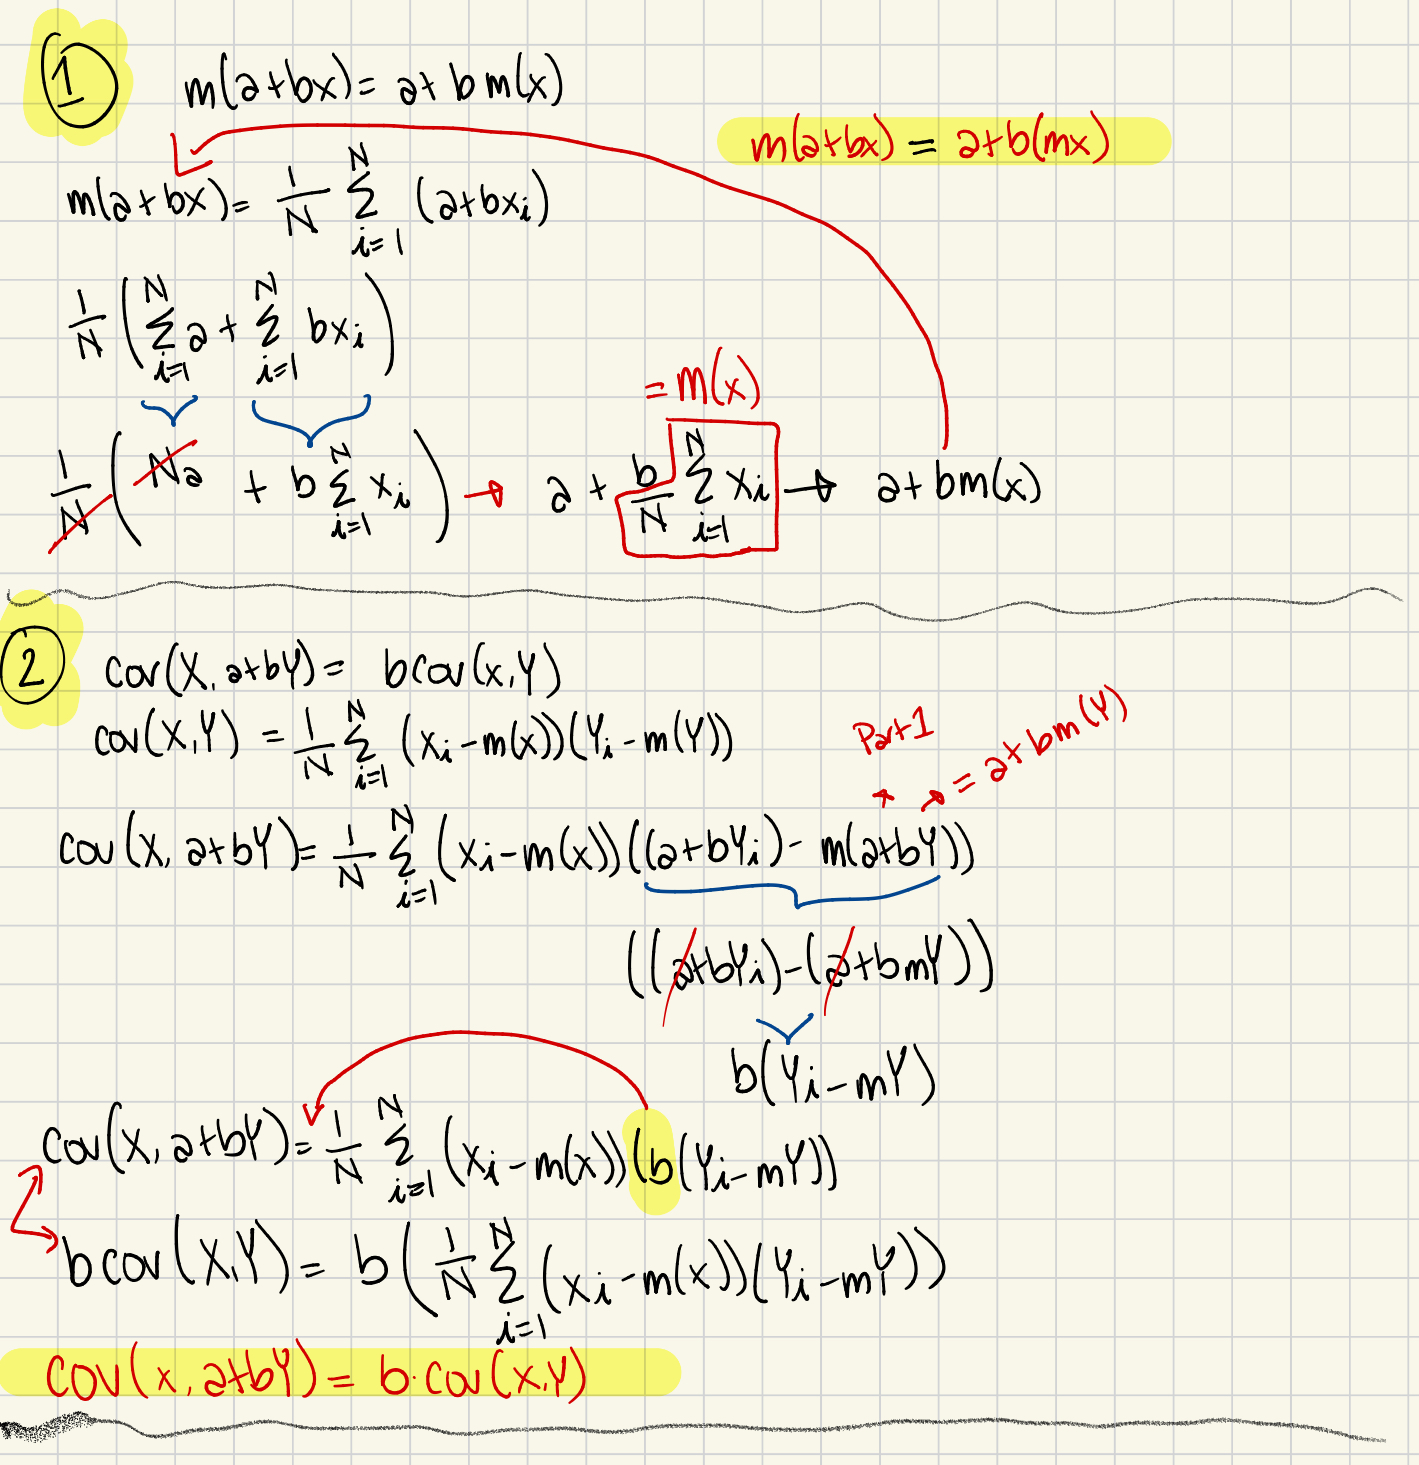 1
m(a+bx) = a+ b m(x)
m(a+bx) = a+b(mx)
m(a+bx) = 1/N N Σ i=1 (a+bxi)
1/N ( N Σ i=1 a + N Σ i=1 bxi )
= m(x)
1/N ( Na + b N Σ i=1 xi ) → a + b/N N Σ i=1 xi → a+bm(x)
2
cov(X, a+bY) = bcov(x,Y)
cov(X,Y) = 1/N N Σ i=1 (xi - m(x))(Yi - m(Y))
Part 1
= a+bm(Y)
cov(X, a+bY) = 1/N N Σ i=1 (xi - m(x))((a+bYi) - m(a+bY))
((a+bYi) - (a+bmY))
b(Yi - mY)
cov(X, a+bY) = 1/N N Σ i=1 (xi - m(x))(b(Yi - mY))
b cov(X,Y) = b( 1/N N Σ i=1 (xi - m(x))(Yi - mY))
cov(x, a+bY) = b·cov(x,Y)